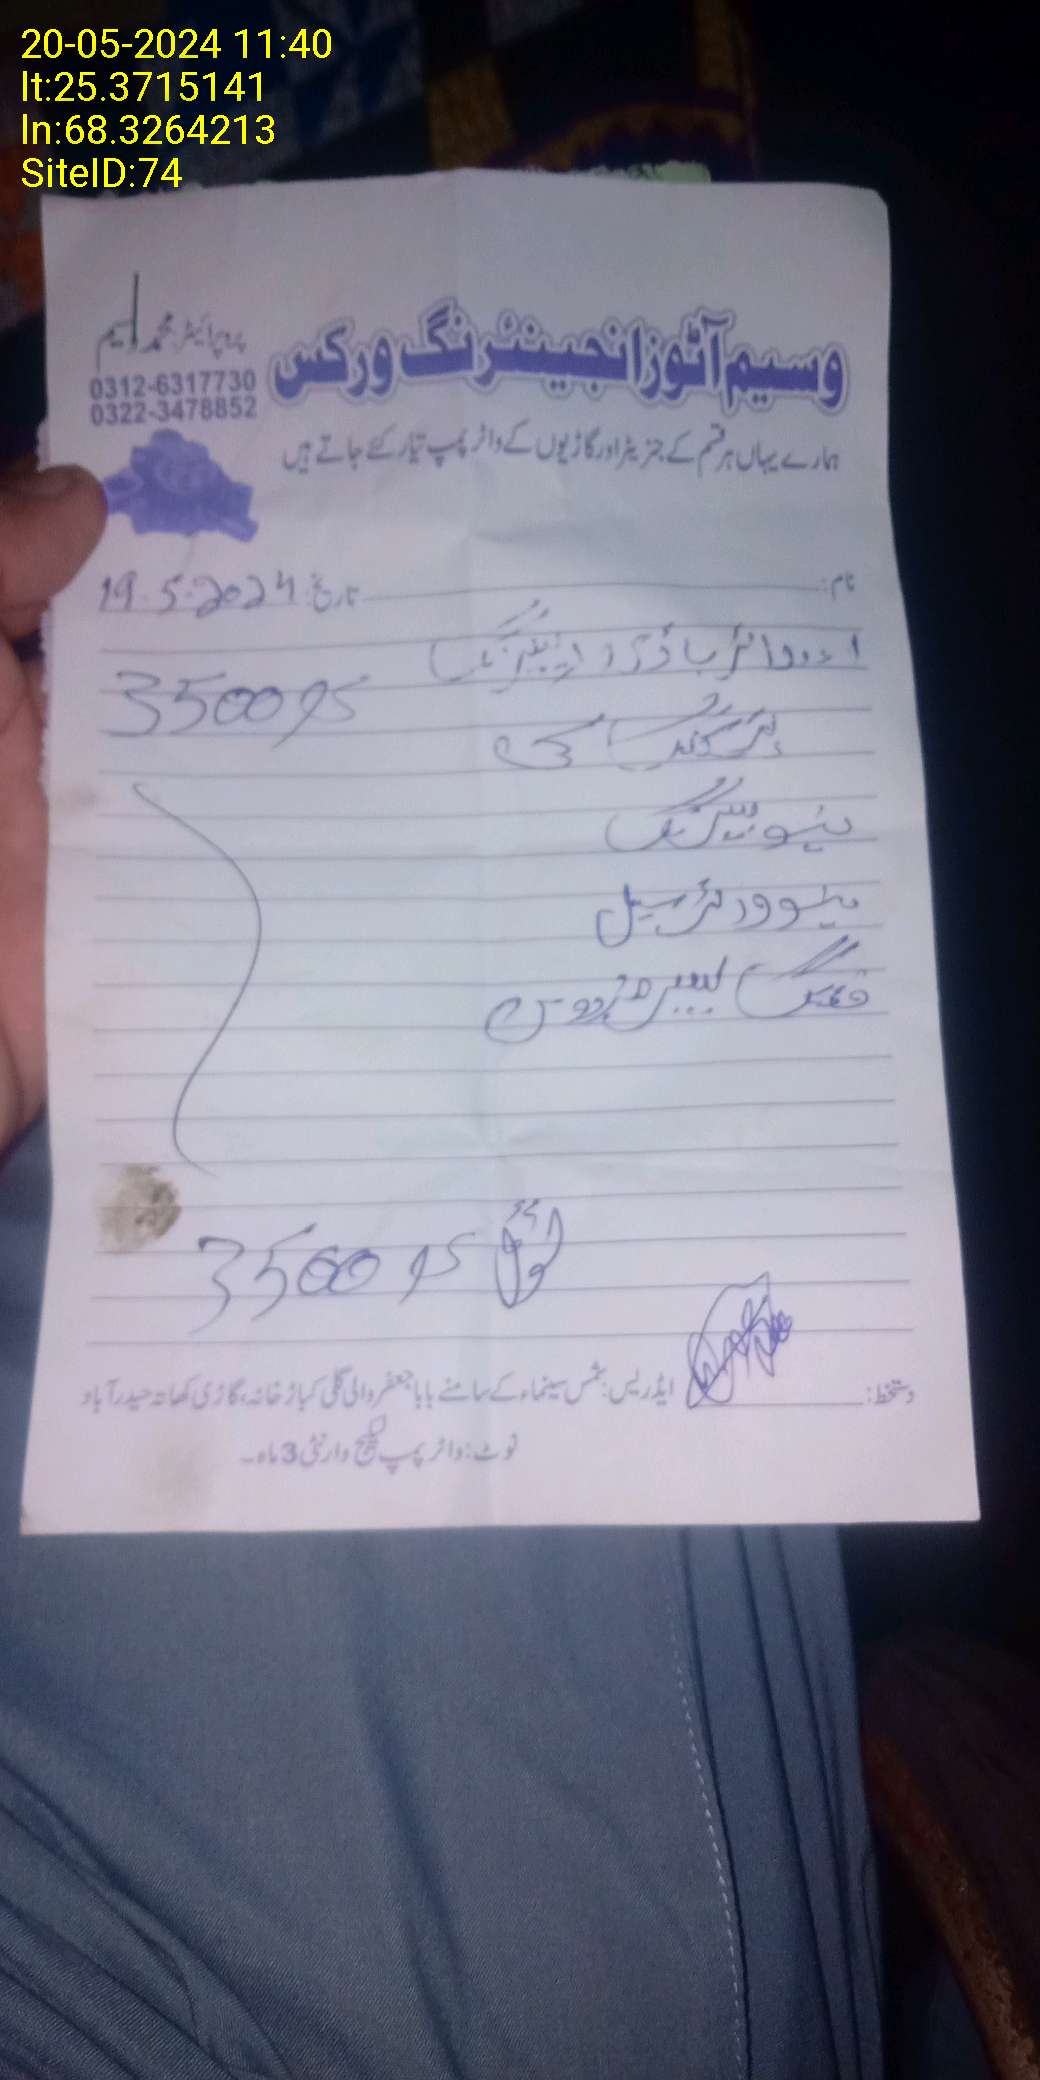 20-05-2024 11:40
lt:25.3715141
ln:68.3264213
SiteID:74
وسیم آٹوز انجینئرنگ ورکس
پروپرائیٹر: محمد وسیم
0312-6317730
0322-3478852
ہمارے یہاں ہر قسم کے جنریٹر اور گاڑیوں کے واٹر پمپ تیار کئے جاتے ہیں
نام: تاریخ: 19.5.2024
واٹر باڈی
3500 RS
نیو بیئرنگ
نیو واٹر سیل
فٹنگ
ٹوٹل 3500 RS
دستخط:
ایڈریس: شمس سینماء کے سامنے بابا جعفر والی گلی کباڑ خانہ، گاڑی کھاتہ حیدرآباد
نوٹ: واٹر پمپ وارنٹی 3 ماہ۔